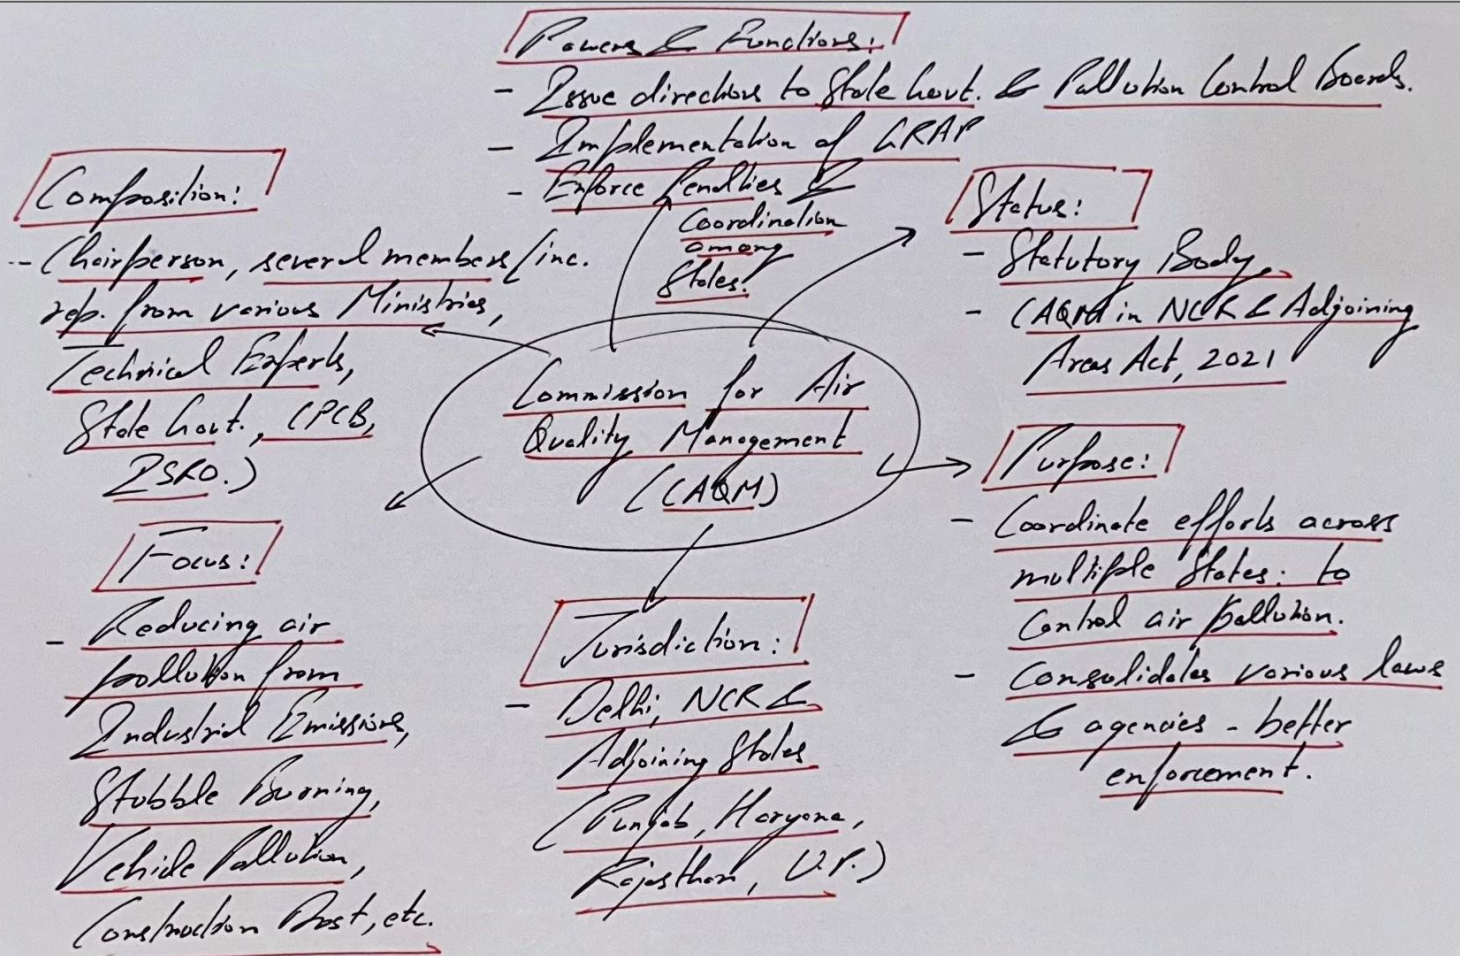 Powers & Functions:
- Issue directions to State Govt. & Pollution Control Boards.
- Implementation of GRAP
- Enforce Penalties &
Coordination
among
States.
Composition:
- Chairperson, several members (inc.
rep. from various Ministries,
Technical Experts,
State Govt., CPCB,
ISRO.)
Status:
- Statutory Body
- CAQM in NCR & Adjoining
Areas Act, 2021
Commission for Air
Quality Management
(CAQM)
Purpose:
- Coordinate efforts across
multiple States. to
Control air pollution.
- Consolidates various laws
& agencies - better
enforcement.
Focus:
- Reducing air
pollution from
Industrial Emissions,
Stubble Burning,
Vehicle Pollution,
Construction Dust, etc.
Jurisdiction:
- Delhi, NCR &
Adjoining States
(Punjab, Haryana,
Rajasthan, U.P.)